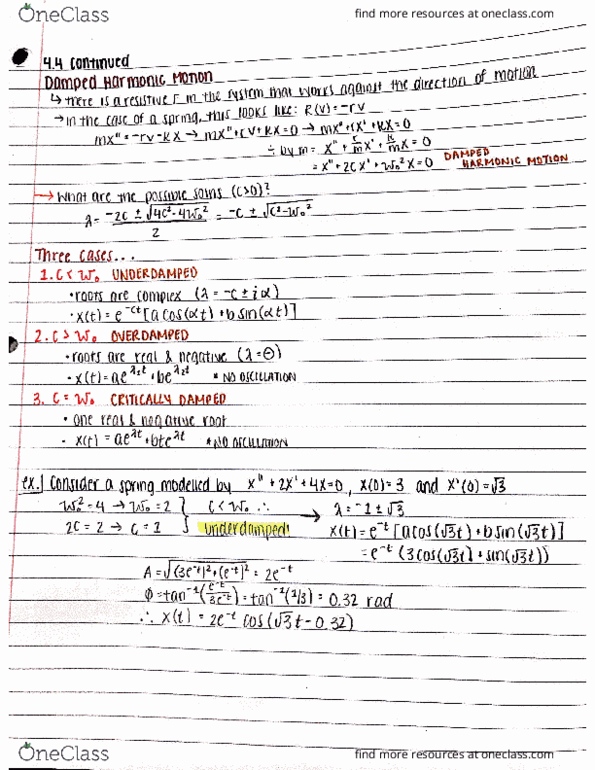 OneClass
find more resources at oneclass.com
4.4 continued
DAMPED HARMONIC MOTION
↳ there is a resistive r in the system that works against the direction of motion
→ in the case of a spring, this looks like: R(v) = -rv
mx" = -rv - kx → mx" + rv + kx = 0 → mx" + rx' + kx = 0
÷ by m = x" + r/m x' + k/m x = 0
= x" + 2cx' + w₀²x = 0 DAMPED HARMONIC MOTION
→ What are the possible solns (c>0)?
λ = (-2c ± √4c² - 4w₀²)/2 = -c ± √c² - w₀²
Three cases...
1. c < w₀ UNDERDAMPED
• roots are complex (λ = -c ± iα)
• x(t) = e^-ct [a cos(αt) + b sin(αt)]
2. c > w₀ OVERDAMPED
• roots are real & negative (λ = ⊖)
• x(t) = ae^λ₁t + be^λ₂t * NO OSCILLATION
3. c = w₀ CRITICALLY DAMPED
• one real & negative root
• x(t) = ae^λt + bte^λt * NO OSCILLATION
ex.] Consider a spring modelled by x" + 2x' + 4x = 0, x(0) = 3 and x'(0) = √3
w₀² = 4 → w₀ = 2 } c < w₀ ∴ → λ = -1 ± √3
2c = 2 → c = 1 } underdamped! x(t) = e^-t [a cos(√3t) + b sin(√3t)]
= e^-t (3cos(√3t) + sin(√3t))
A = √(3e^-t)² + (e^-t)² = 2e^-t
Φ = tan⁻¹(e^-t/3e^-t) = tan⁻¹(1/3) = 0.32 rad
∴ x(t) = 2e^-t cos(√3t - 0.32)
OneClass
find more resources at oneclass.com